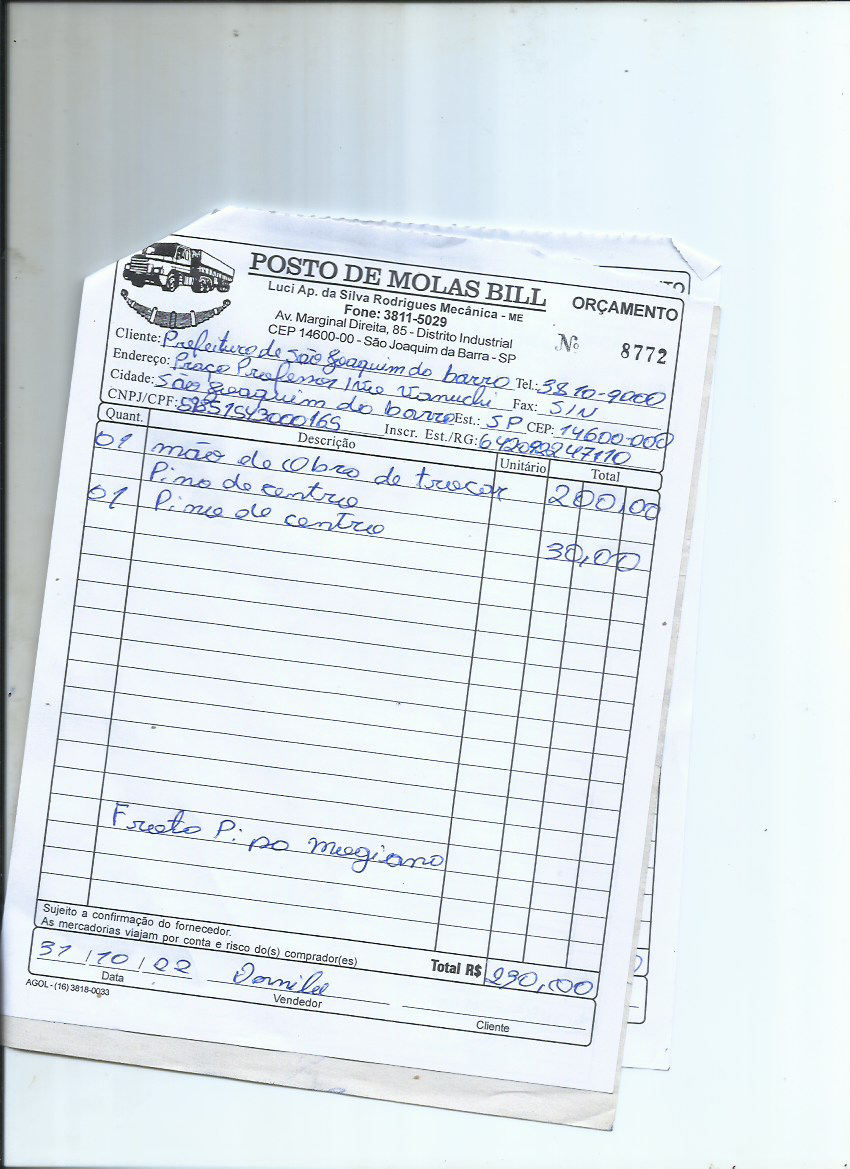 POSTO DE MOLAS BILL
ORÇAMENTO
Luci Ap. da Silva Rodrigues Mecânica - ME
Fone: 3811-5029
Av. Marginal Direita, 85 - Distrito Industrial
CEP 14600-00 - São Joaquim da Barra - SP
Nº 8772
Cliente: Prefeitura de São Joaquim da barra Tel.: 3810-9000
Endereço: Praça Professor Ivo Vanuchi Fax: S/N
Cidade: São Joaquim da barra Est.: SP CEP: 14600-000
CNPJ/CPF: Inscr. Est./RG: 642092247110
Quant. Descrição Unitário Total
01 mão de Obra de trocar 200,00
Pino de centro
01 Pino de centro
30,00
Sujeito a confirmação do fornecedor.
As mercadorias viajam por conta e risco do(s) comprador(es)
Total R$ 290,00
31/10/22
Data Vendedor Cliente
AGOL - (16) 3818-0033